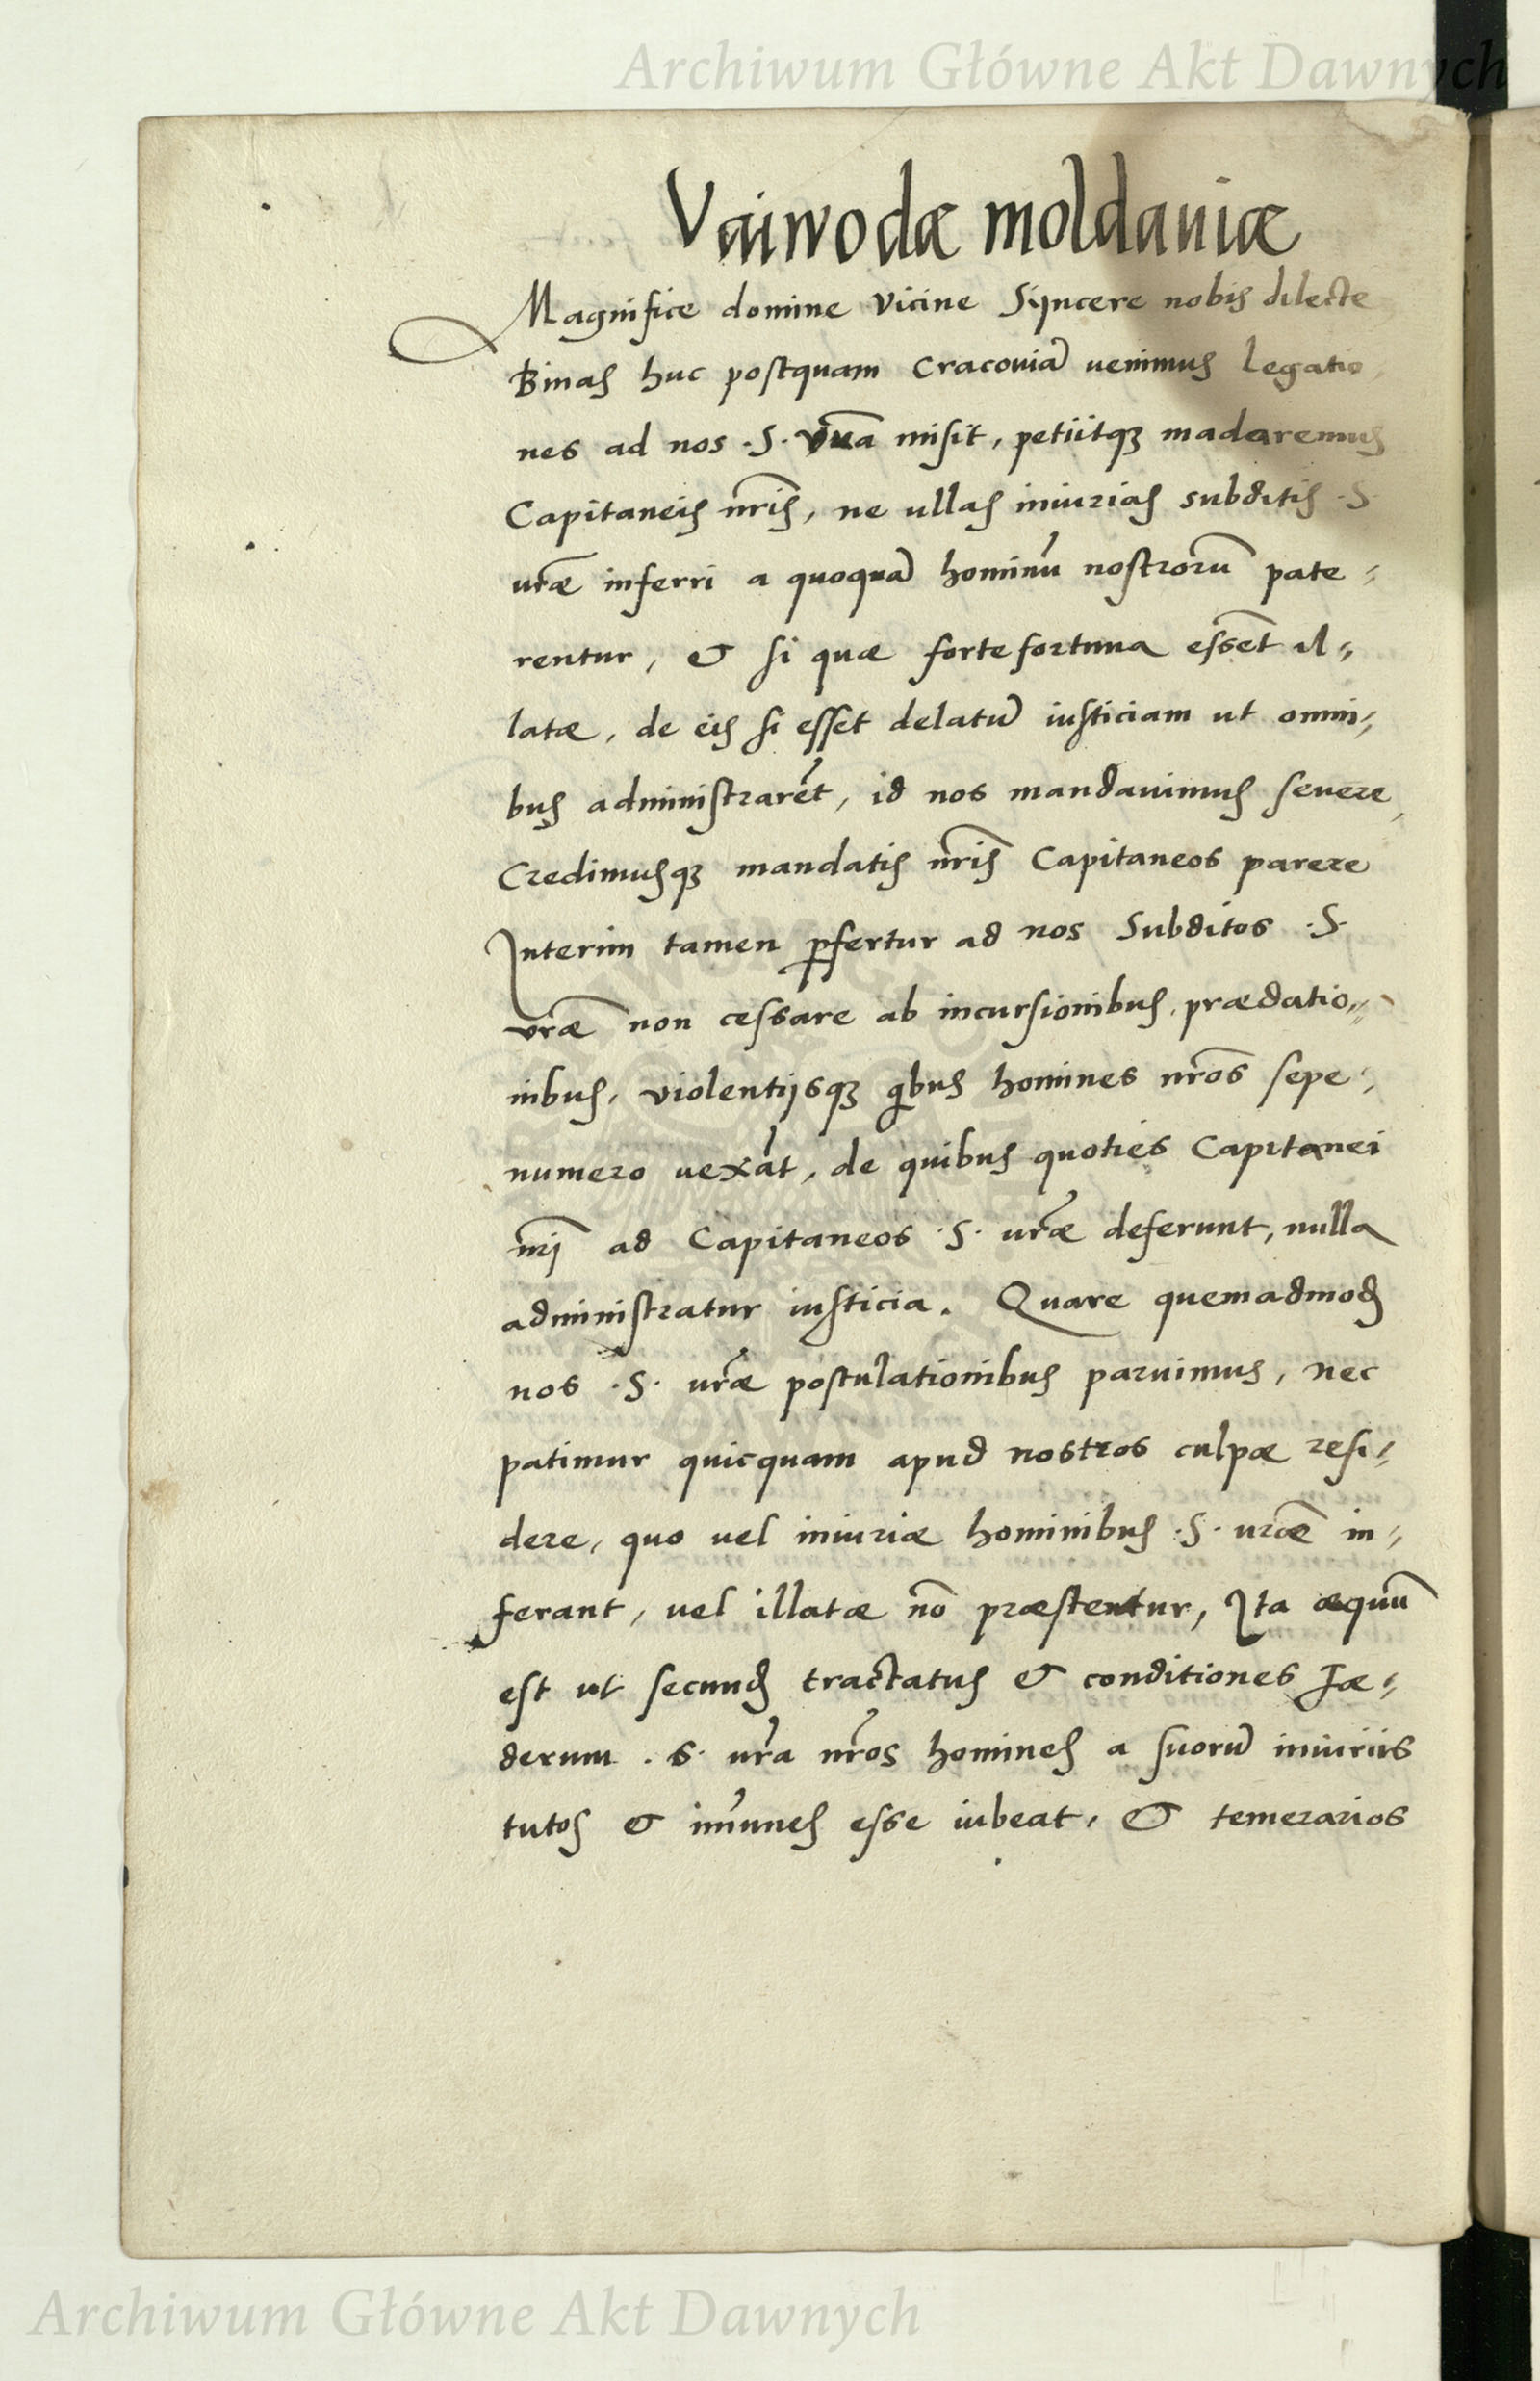 Archiwum Główne Akt Dawnych
Vaiwodæ moldauiæ
Magnifice domine Vicine Sÿncere nobis dilecte
Binas huc postquam Cracouiā uenimus legatio
nes ad nos .S. vr̃a misit, petiitqꝫ mādaremus
Capitaneis nr̃is, ne ullas iniurias subditis .S.
ur̃æ inferri a quoquā hominū nostrorū pate-
rentur, & si quæ forte fortuna essēt il-
latæ, de eis si esset delatū iusticiam ut omni-
bus administrarēt, id nos mandauimus seuere,
Credimusqꝫ mandatis nr̃is Capitaneos parere
Interim tamen ꝑfertur ad nos Subditos .S.
vr̃æ non cessare ab incursionibus, prædatio-
nibus, violentijsqꝫ qibus homines nr̃os sepe-
numero uexāt, de quibus quoties Capitanei
nr̃j ad Capitaneos .S. ur̃æ deferunt, nulla
administratur iusticia. Quare quemadmoꝺ
nos .S. ur̃æ postulationibus paruimus, nec
patimur quicquam apud nostros culpæ resi-
dere, quo uel iniuriæ hominibus .S. ur̃æ in-
ferant, uel illatæ nō præstentur, Ita æquū
est ut secunꝺ tractatus & conditiones fæ-
derum .S. ur̃a nr̃os homines a suorū iniuriis
tutos & im̃unes esse iubeat, & temerarios
Archiwum Główne Akt Dawnych